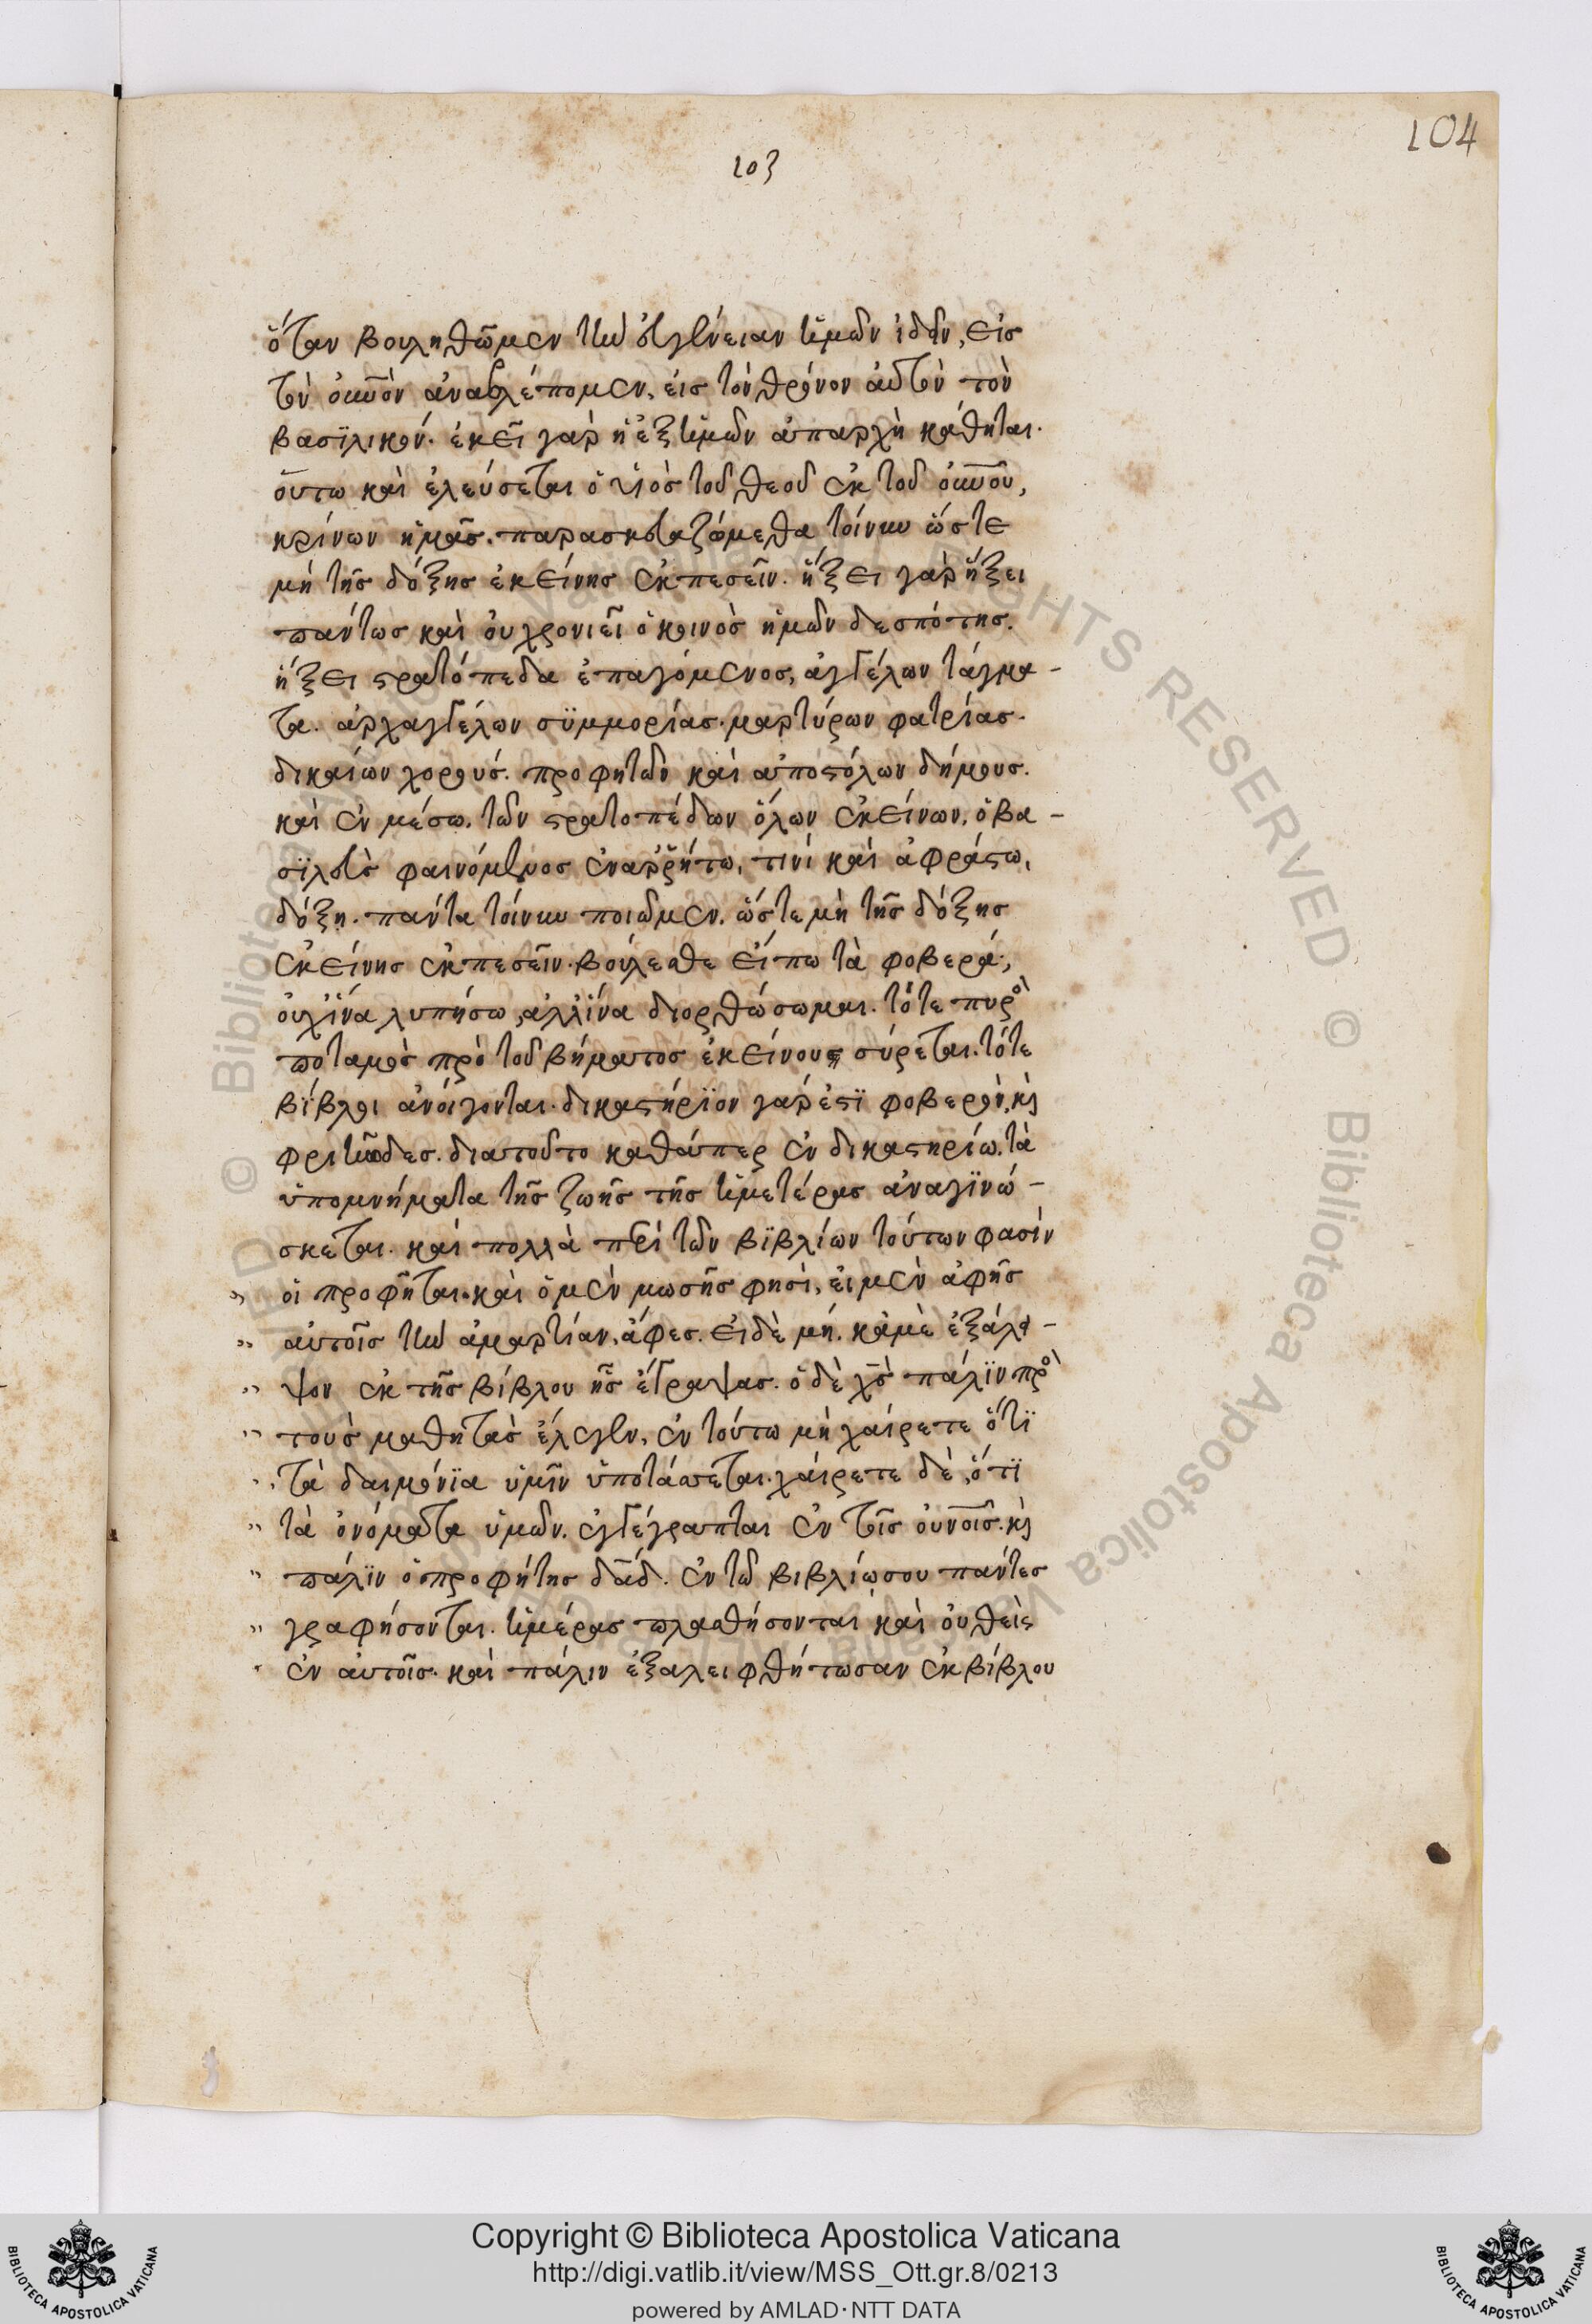 104
103
ὅταν βουληθῶμεν τὴν εὐγένειαν ἡμῶν ἰδεῖν, εἰσ
τὸν οὐνὸν ἀναβλέπομεν, εἰς τὸν θρόνον αὐτὸν τὸν
βασϊλικόν. ἐκεῖ γὰρ ἡ ἐξ ἡμῶν ἀπαρχὴ κάθηται.
οὕτω καὶ ἐλεύσεται ὁ υἱὸς τοῦ θεοῦ ἐκ τοῦ οὐνοῦ,
κρίνων ἡμᾶς. παρασκευαζώμεθα τοίνυν ὥστε
μὴ τῆς δόξης ἐκείνης ἐκπεσεῖν. ἥξει γὰρ ἥξει
πάντως καὶ οὐ χρονιεῖ ὁ κοινὸς ἡμῶν δεσπότης.
ἥξει στρατόπεδα ἐπαγόμενος, ἀγγέλων τάγμα-
τα. ἀρχαγγέλων σϋμμορίας. μαρτύρων φατρίας.
δικαίων χορούς. προφητῶν καὶ ἀποστόλων δήμους.
καὶ ἐν μέσω, τῶν στρατοπέδων ὅλων ἐκείνων, ὁ βα-
σϊλεὺς φαινόμενος ἐν ἀῤῥήτω, τινί καὶ ἀφράστω,
δόξη. πάντα τοίνυν ποιῶμεν, ὥστε μὴ τῆς δόξης
ἐκείνης ἐκπεσεῖν. βούλεσθε εἴπω τὰ φοβερά;
οὐχ ἵνα λυπήσω, ἀλλ' ἵνα διορθώσωμαι. τότε πυρὸ
ποταμὸς πρὸ τοῦ βήματος ἐκείνους σύρεται. τότε
βίβλοι ἀνοίγονται. δικαστήρϊον γάρ ἐστϊ φοβερὸν, κὶ
φριτῶδες. διατοῦτο καθάπερ ἐν δικαστηρίω, τὰ
ὑπομνήματα τῆς ζωῆς τῆς ἡμετέρας ἀναγϊνώ-
σκεται. καὶ πολλὰ περὶ τῶν βϊβλίων τούτων φασὶν
οἱ προφῆται. καὶ ὁ μὲν μωσῆς φησὶ, εἰ μὲν ἀφῆς
αὐτοῖς τὴν ἁμαρτίαν, ἄφες. εἰ δὲ μή. κἀμὲ ἐξάλει-
ψον ἐκ τῆς βίβλου ἧς ἔγραψας. ὁ δὲ χς πάλϊν πρὸ
τοὺς μαθητὰς ἔλεγεν, ἐν τούτω μὴ χαίρετε ὅτϊ
τὰ δαιμόνϊα ὑμῖν ὑποτάσσεται. χαίρετε δὲ, ὅτϊ
τὰ ὀνόματα ὑμῶν. ἐγγέγραπται ἐν τοῖς οὐνοῖς. κὶ
πάλϊν ὁ προφήτης δᾱδ. ἐν τῶ βιβλίω σου πάντες
γραφήσονται. ἡμέρας πλασθήσονται καὶ οὐθεὶς
ἐν αὐτοῖς. καὶ πάλιν ἐξαλειφθήτωσαν ἐκ βίβλου
Copyright © Biblioteca Apostolica Vaticana
http://digi.vatlib.it/view/MSS_Ott.gr.8/0213
powered by AMLAD·NTT DATA